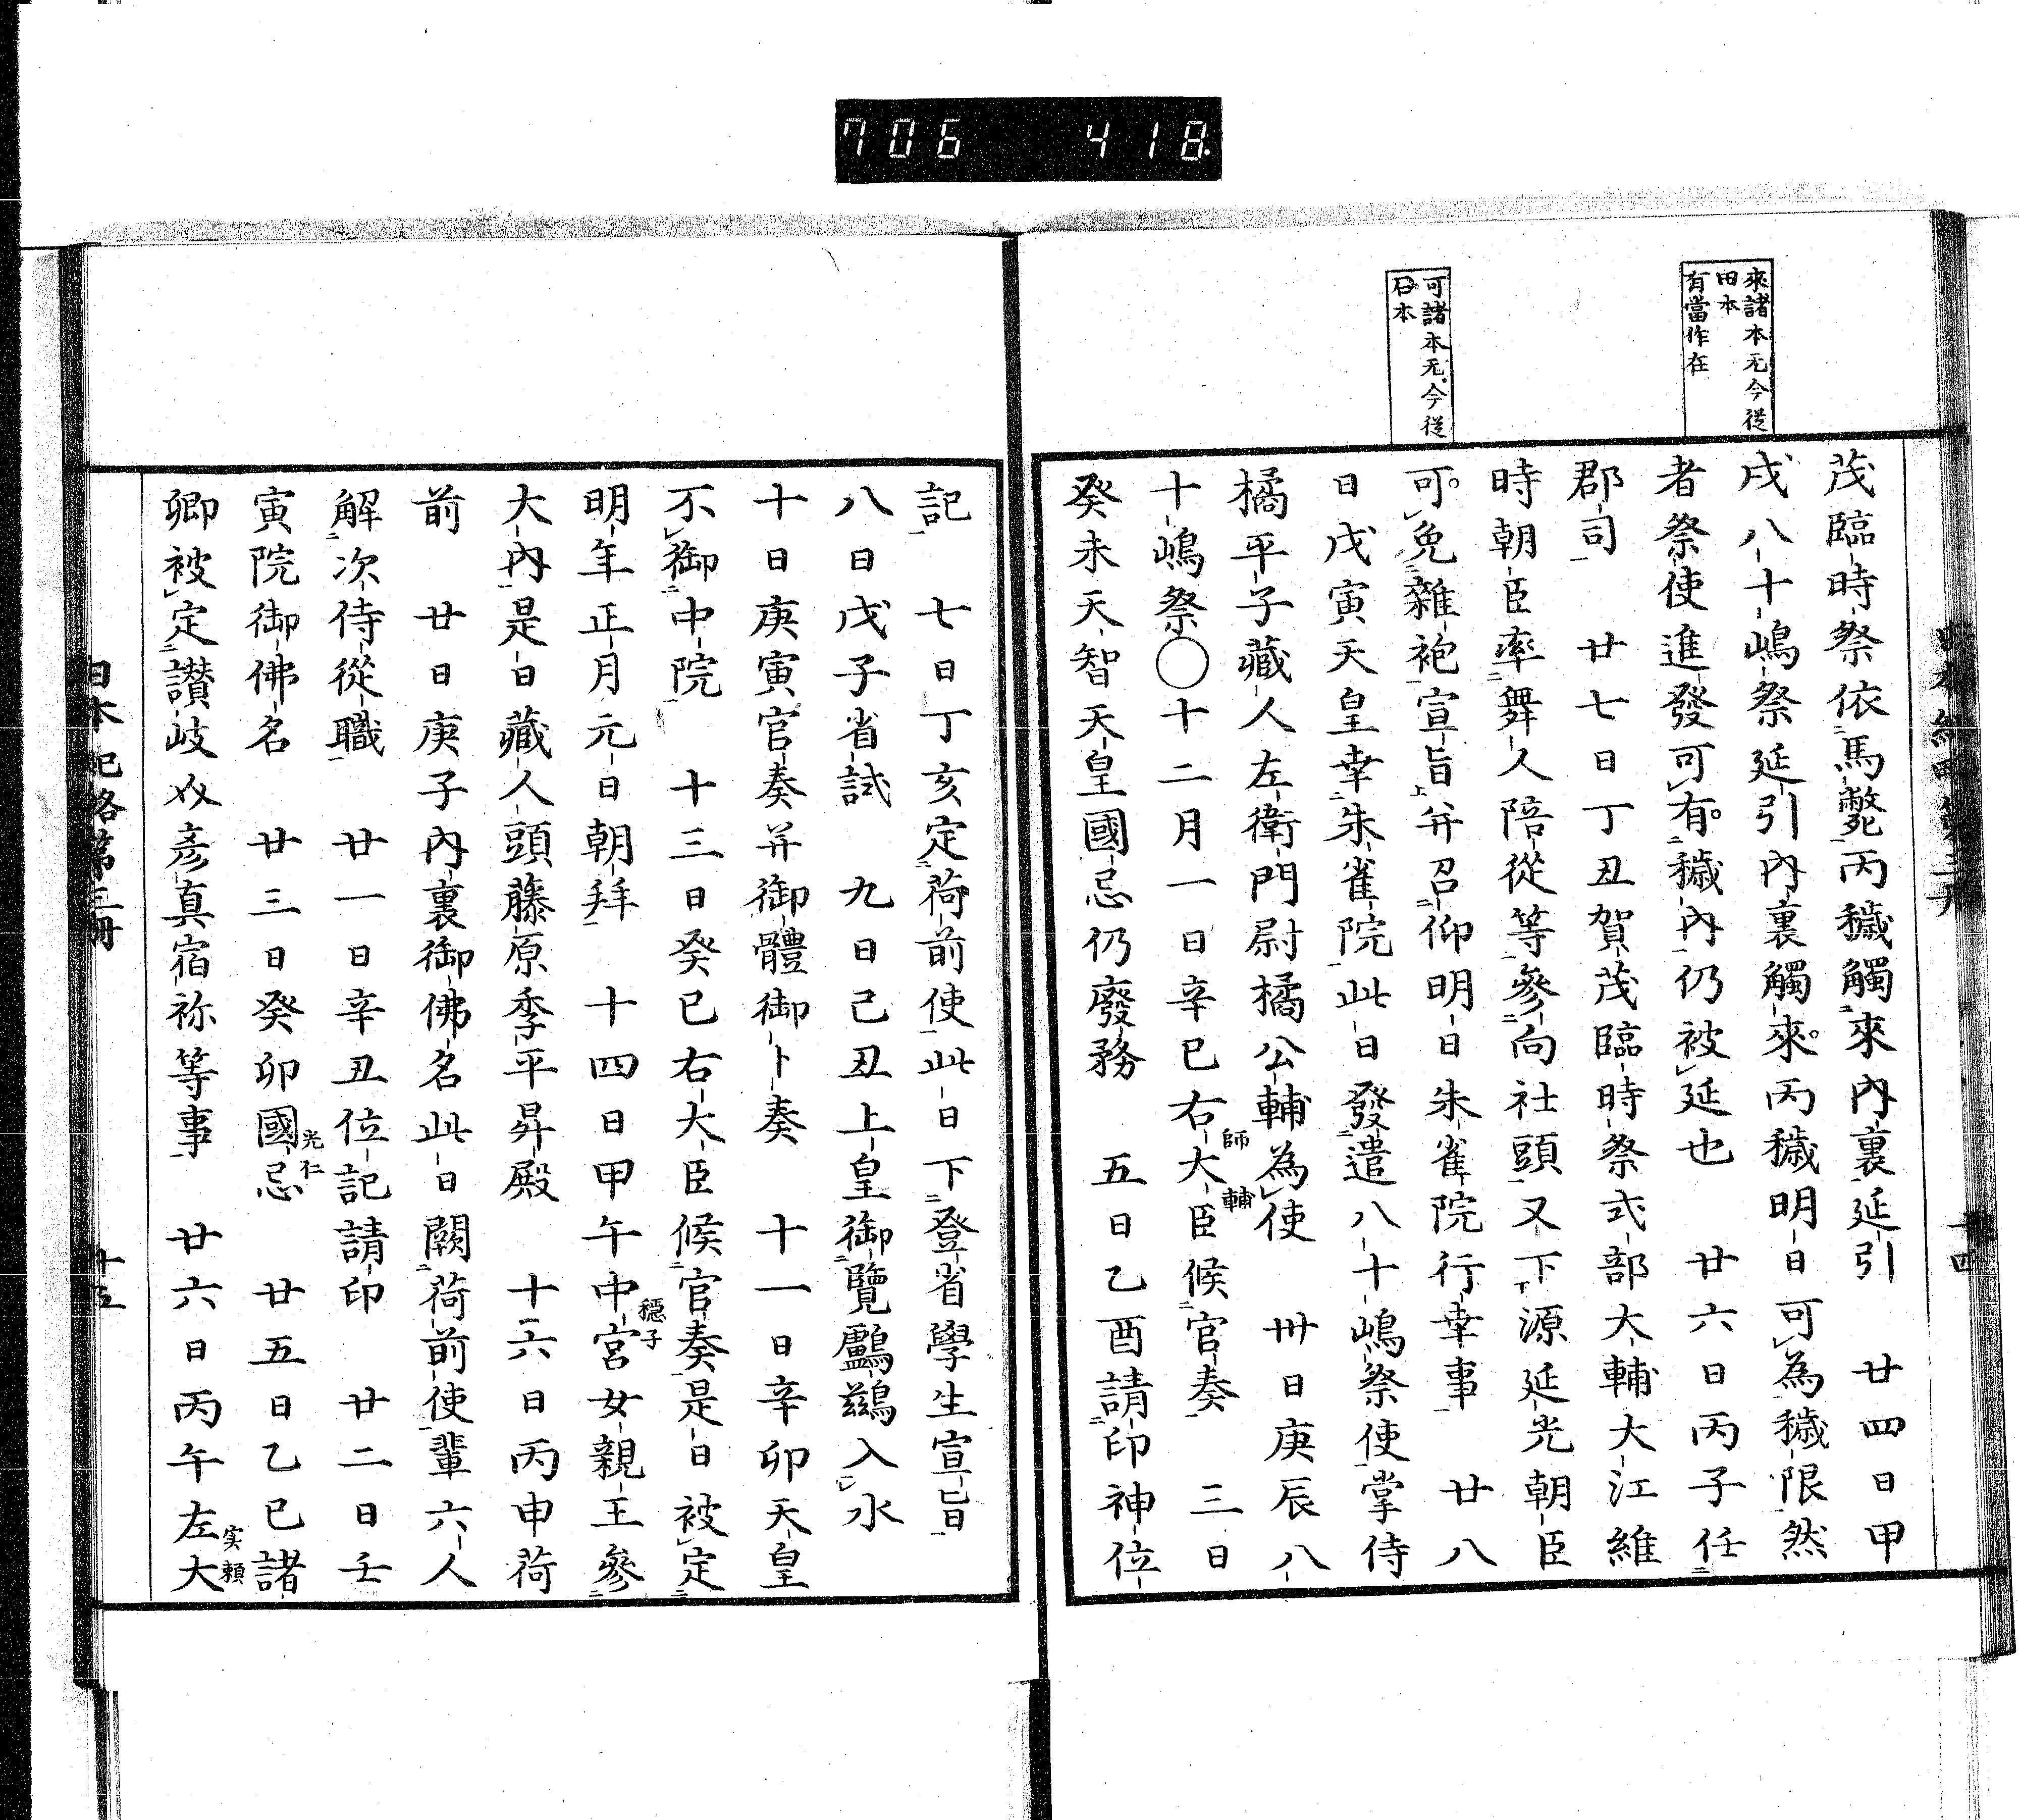 706 418
來諸本无今從
田本
有當作在
可諸本无今從
石本
茂臨時祭依馬斃丙穢觸來內裏延引 廿四日甲
戌八十嶋祭延引內裏觸來丙穢明日可為穢限然
者祭使進發可有穢內仍被延也 廿六日丙子任
郡司 廿七日丁丑賀茂臨時祭式部大輔大江維
時朝臣率舞人陪從等參向社頭又下源延光朝臣
可免雜袍宣旨并召仰明日朱雀院行幸事 廿八
日戊寅天皇幸朱雀院此日發遣八十嶋祭使掌侍
橘平子藏人左衛門尉橘公輔為使 卅日庚辰八
十嶋祭○十二月一日辛巳右大臣候官奏 三日
師輔
癸未天智天皇國忌仍廢務 五日乙酉請印神位
記 七日丁亥定荷前使此日下登省學生宣旨
八日戊子省試 九日己丑上皇御覽鸕鷀入水
十日庚寅官奏并御體御卜奏 十一日辛卯天皇
不御中院 十三日癸巳右大臣候官奏是日被定
明年正月元日朝拜 十四日甲午中宮女親王參
穩子
大內是日藏人頭藤原季平昇殿 十六日丙申荷
前 廿日庚子內裏御佛名此日闕荷前使輩六人
解次侍從職 廿一日辛丑位記請印 廿二日壬
寅院御佛名 廿三日癸卯國忌 廿五日乙巳諸
光仁
卿被定讚岐介彥真宿祢等事 廿六日丙午左大
実頼
日本紀略第三冊 十五